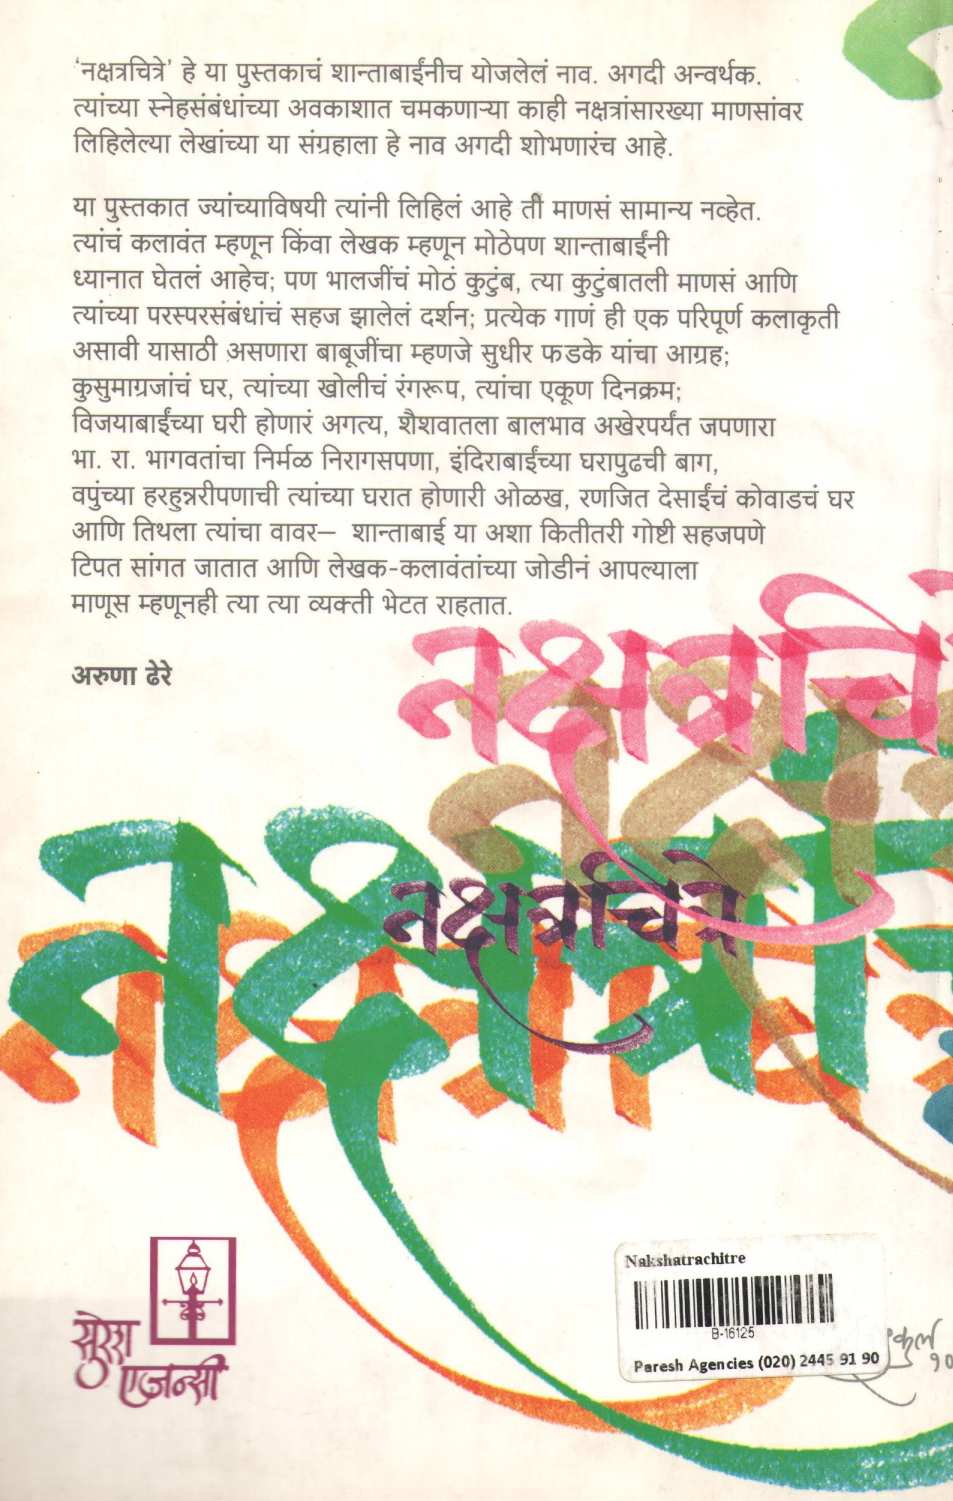 'नक्षत्रचित्रे' हे या पुस्तकाचं शान्ताबाईंनीच योजलेलं नाव. अगदी अन्वर्थक.
त्यांच्या स्नेहसंबंधांच्या अवकाशात चमकणाऱ्या काही नक्षत्रांसारख्या माणसांवर
लिहिलेल्या लेखांच्या या संग्रहाला हे नाव अगदी शोभणारंच आहे.
या पुस्तकात ज्यांच्याविषयी त्यांनी लिहिलं आहे ती माणसं सामान्य नव्हेत.
त्यांचं कलावंत म्हणून किंवा लेखक म्हणून मोठेपण शान्ताबाईंनी
ध्यानात घेतलं आहेच; पण भालजींचं मोठं कुटुंब, त्या कुटुंबातली माणसं आणि
त्यांच्या परस्परसंबंधांचं सहज झालेलं दर्शन; प्रत्येक गाणं ही एक परिपूर्ण कलाकृती
असावी यासाठी असणारा बाबूजींचा म्हणजे सुधीर फडके यांचा आग्रह;
कुसुमाग्रजांचं घर, त्यांच्या खोलीचं रंगरूप, त्यांचा एकूण दिनक्रम;
विजयाबाईंच्या घरी होणारं अगत्य, शैशवातला बालभाव अखेरपर्यंत जपणारा
भा. रा. भागवतांचा निर्मळ निरागसपणा, इंदिराबाईंच्या घरापुढची बाग,
वपुंच्या हरहुन्नरीपणाची त्यांच्या घरात होणारी ओळख, रणजित देसाईंचं कोवाडचं घर
आणि तिथला त्यांचा वावर– शान्ताबाई या अशा कितीतरी गोष्टी सहजपणे
टिपत सांगत जातात आणि लेखक-कलावंतांच्या जोडीनं आपल्याला
माणूस म्हणूनही त्या त्या व्यक्ती भेटत राहतात.
अरुणा ढेरे
नक्षत्रचि
नक्षत्रचित्रे
सुरेश
एजन्सी
Nakshatrachitre
B-16125
Paresh Agencies (020) 2445 91 90